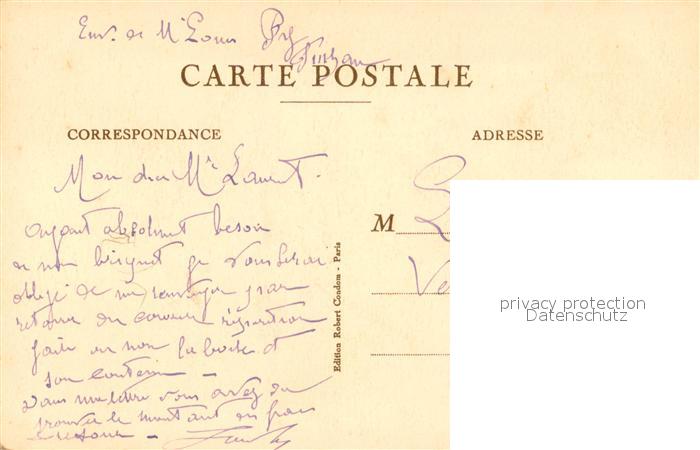 Env. de Mr Louis
CARTE POSTALE
CORRESPONDANCE
ADRESSE
Mon cher Mr Laurent.
ayant absolument besoin
de mon briquet je vous serai
obligé de me par
retour du courrier réparation
faite ou non la boite et
son contenu —
vous me direz vous avez du
le montant en frais
—
M
Edition Robert Condom - Paris
privacy protection
Datenschutz